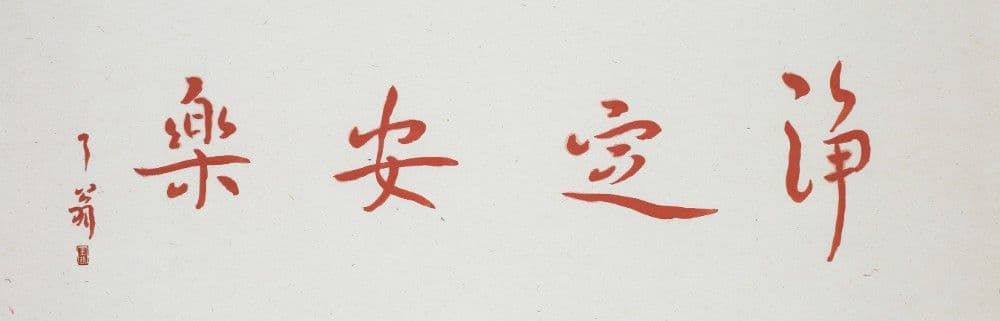 淨定安樂
了翁